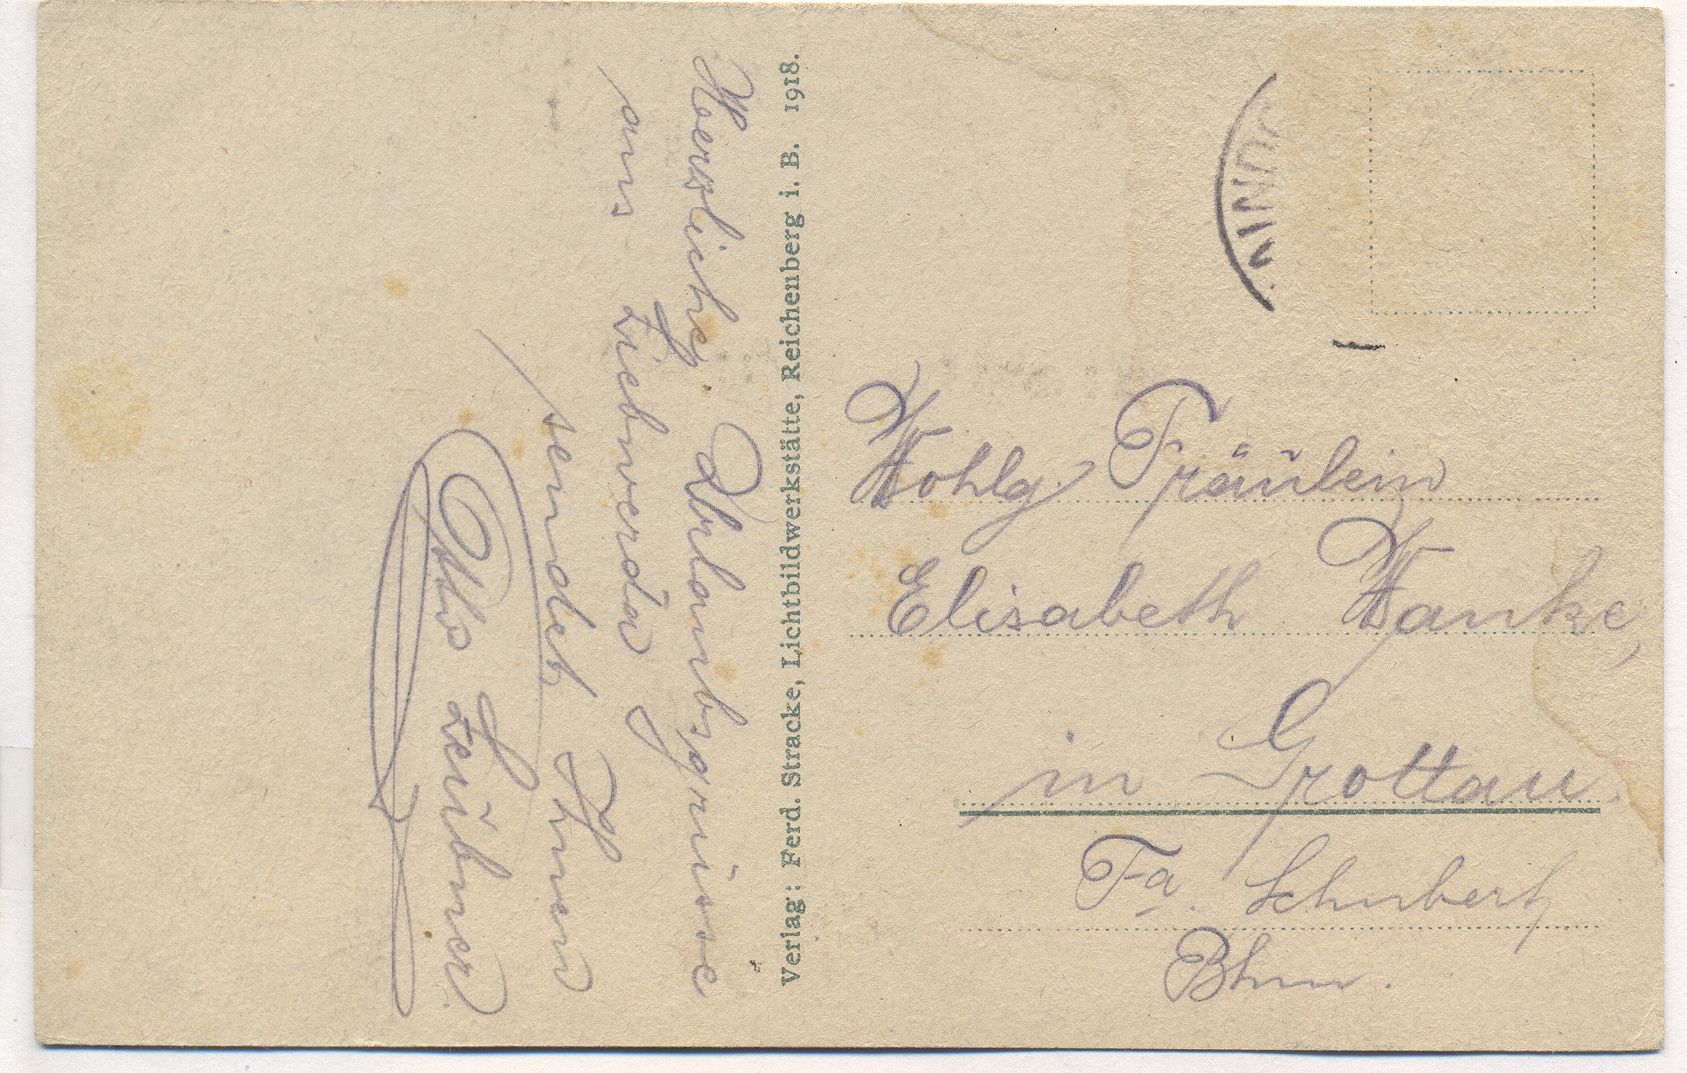 Herzliche Urlaubsgrüsse
aus Liebwerda
sendet Ihnen
Otto Leubner.
Verlag: Ferd. Stracke, Lichtbildwerkstätte, Reichenberg i. B. 1918.
Wohlg. Fräulein
Elisabeth Wanke,
in Grottau.
Fa. Schubert
Bhm.